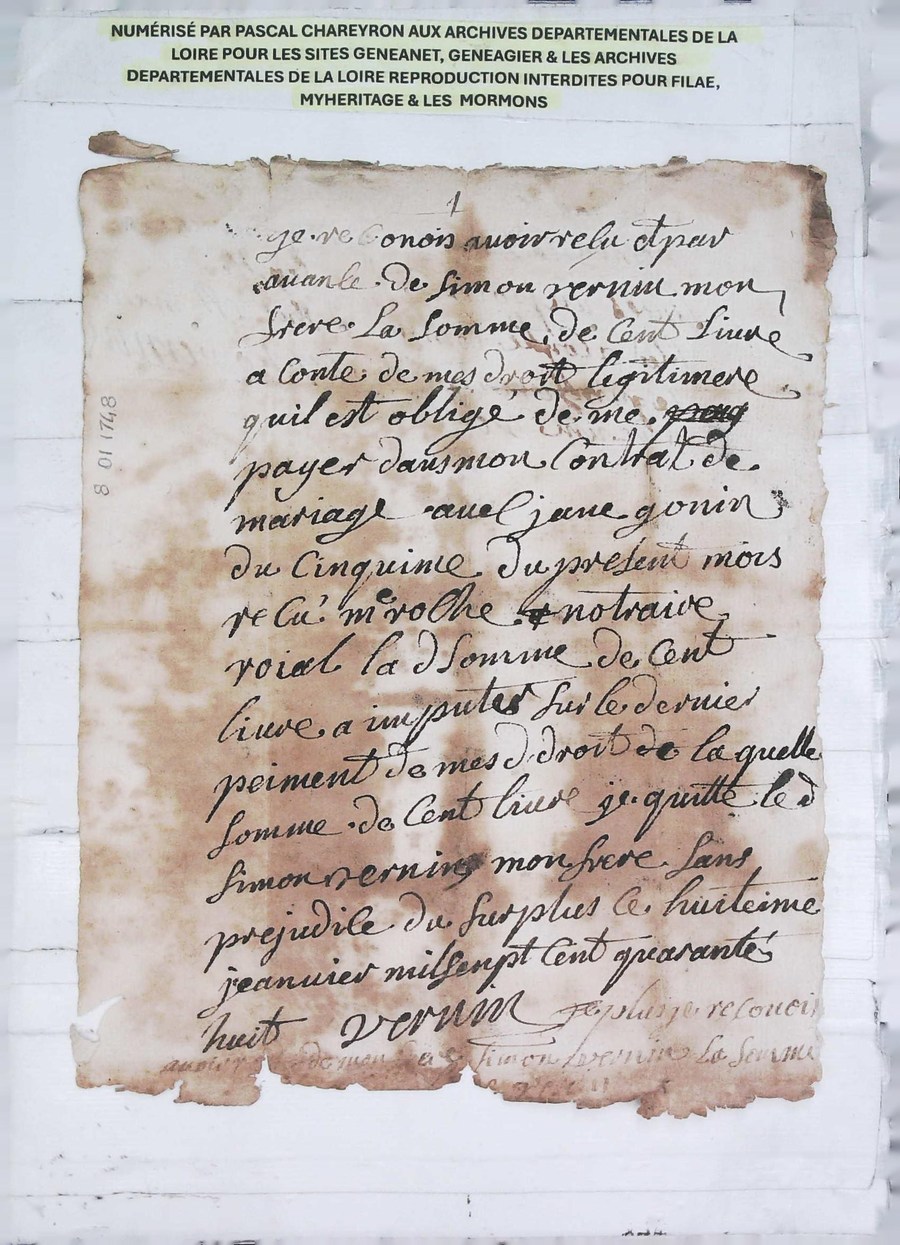 NUMÉRISÉ PAR PASCAL CHAREYRON AUX ARCHIVES DEPARTEMENTALES DE LA
LOIRE POUR LES SITES GENEANET, GENEAGIER & LES ARCHIVES
DEPARTEMENTALES DE LA LOIRE REPRODUCTION INTERDITES POUR FILAE,
MYHERITAGE & LES MORMONS
1
je reconois avoir resu et par
avance de simon vernin mon
frere La somme de Cent Livre
a Conte de mes droit legitimere
quil est obligé de me
payer dans mon Contrat de
mariage avec jane gonin
du Cinquime du present mois
recu me roche notraire
roial la d somme de Cent
livre a imputer sur le dernier
peiment de mes d droit de la quelle
somme de Cent livre je quitte le d
simon vernin mon frere sans
prejudice du surplus ce huiteime
jeanvier mil senpt Cent quarante
huit vernin plus je reconois
avoir simon vernin La somme
8 01 1748